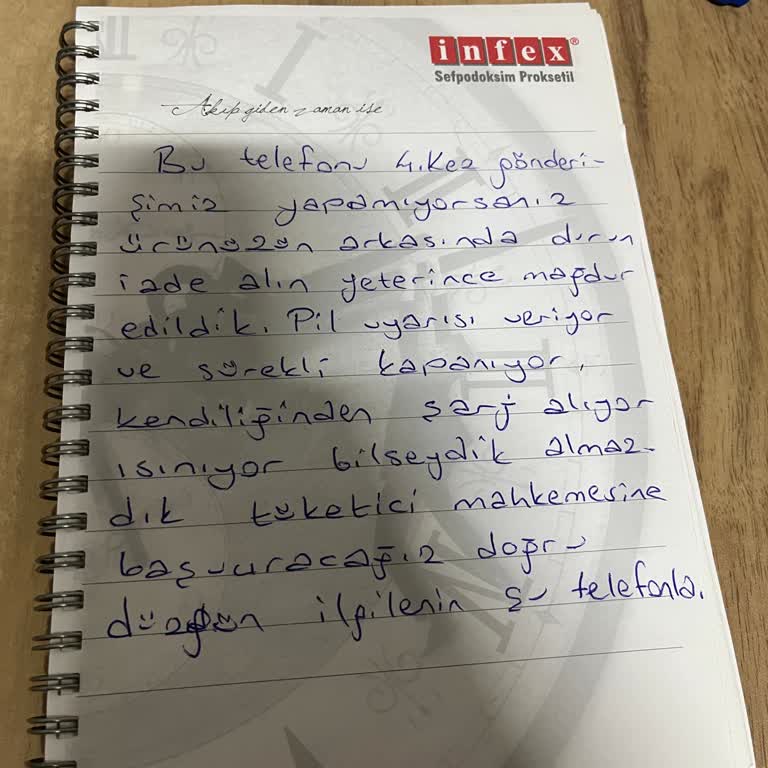 infex®
Sefpodoksim Proksetil
Akıp giden zaman ise
Bu telefonu 4.kez gönderi-
şimiz yapamıyorsanız
ürününüzün arkasında durun
iade alın yeterince mağdur
edildik. Pil uyarısı veriyor
ve sürekli kapanıyor,
kendiliğinden şarj alıyor
ısınıyor bilseydik almaz-
dık tüketici mahkemesine
başvuracağız doğru
düzgün ilgilenin şu telefonla.